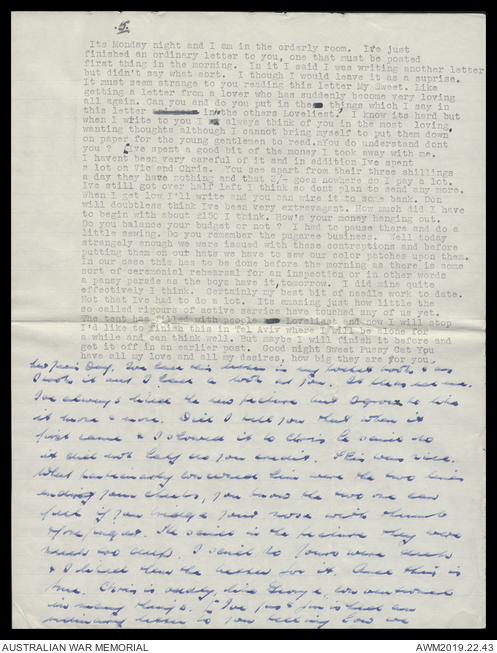 5.
Its Monday night and I am in the orderly room. I've just
finished an ordinary letter to you, one that must be posted
first thing in the morning. In it I said I was writing another letter
but didn't say what sort. I though I would leave it as a suprise.
It must seem strange to you reading this letter My Sweet. Like
getting a letter from a lover who has suddenly become very loving
all again. Can you and do you put in the things which I say in
this letter in the others Loveliest? I know its hard but
when I write to you I always think of you in the most loving,
wanting thoughts although I cannot bring myself to put them down
on paper for the young gentlemen to read. You do understand dont
you ? I've spent a good bit of the money I took away with me.
I havent been very careful of it and in addition Ive spent
a lot on Vic and Chris. You see apart from their three shillings
a day they have nothing and that 3/- goes nowhere so I pay a lot.
Ive still got over half left I think so dont plan to send any more.
When I get low I'll write and you can wire it to some bank. Don
will doubtless think Ive been very extravagant. How much did I have
to begin with about £150 I think. How's your money hanging out.
Do you balance your budget or not ? I had to pause there and do a
little sewing. Do you remember the pugaree business. Well today
strangely enough we were issued with these contraptions and before
putting them on our hats we have to sew our color patches upon them.
In our case this has to be done before the morning as there is some
sort of ceremoniel rehearsal for an inspection or in other words
a pansy parade as the boys have it, tomorrow. I did mine quite
effectively I think. Certainly my best bit of needle work to date.
Not that Ive had to do a lot. Its amazing just how little the
so called rigours of active service have touched any of us yet.
The tent has filled with people Loveliest and now I will stop
I'd like to finish this in Tel Aviv where I will be alone for
a while and can think well. But maybe I will finish it before and
get it off in an earlier post. Good night Sweet Pussy Cat You
have all my love and all my desires, how big they are for you.
Day. I've had this letter in my pocket book &
I took it out & I had a look at you. It pleased me.
I've always liked the new picture but I grow to like
it more & more. Did I tell you that when it
first came & I showed it to Chris he said no
it did not half do you credit. This was nice.
What particularly concerned him were the two lines
ending your cheeks, you know the two one can
feel if you bridge your nose with thumb
& forefinger. He said in the picture they were
much too deep. I said no yours were deep
& I liked the better for it. And this is
true. Chris is oddly, like George, conventional
in many things. I've just finished an
ordinary letter to you telling how we
AUSTRALIAN WAR MEMORIAL
AWM2019.22.43